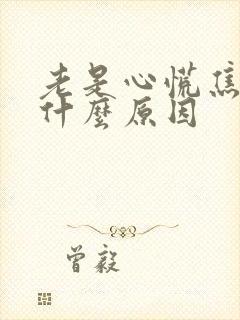 老是心慌焦
什麼原因
曾毅